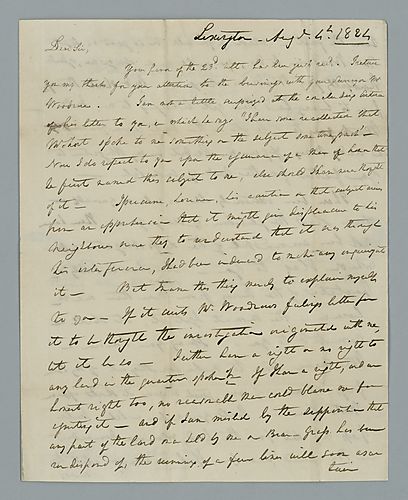 Lexington - Augt. 4th. 1824
Dear Sir,
Your favor of the 23d. ulto. has been just recd. I return
you my thanks for your attention to the business with your surveyor Mr
Woodrow. I am not a little surprized at the concluding sentence
of his letter to you, in which he says "I have some recollection that
Wickort spoke to me something on the subject some time past" -
Now I do expect to you upon the assurance of a man of honor that
he first named this subject to me else should I have never thought
of it - I presume, however, his caution on that subject arises
from an apprehension that it might give displeasure to his
neighbours were they to understand that it was through
his interference, I had been induced to make any enquiry into
it - But I name this thing merely to explain myself
to you - If it suits Mr. Woodrow's feelings better for
it to be thought the investigation originated with me,
let it be so - I either have a right or no right to
any land in the quarter spoken of. If I have a right, and an
honest right too, no reasonable man could blame me for
ejecting it - and if I am misled by the supposition that
any part of the land once held by me on Bear-Grass has been
un disposed of, the running of a few lines will soon ascer
tain